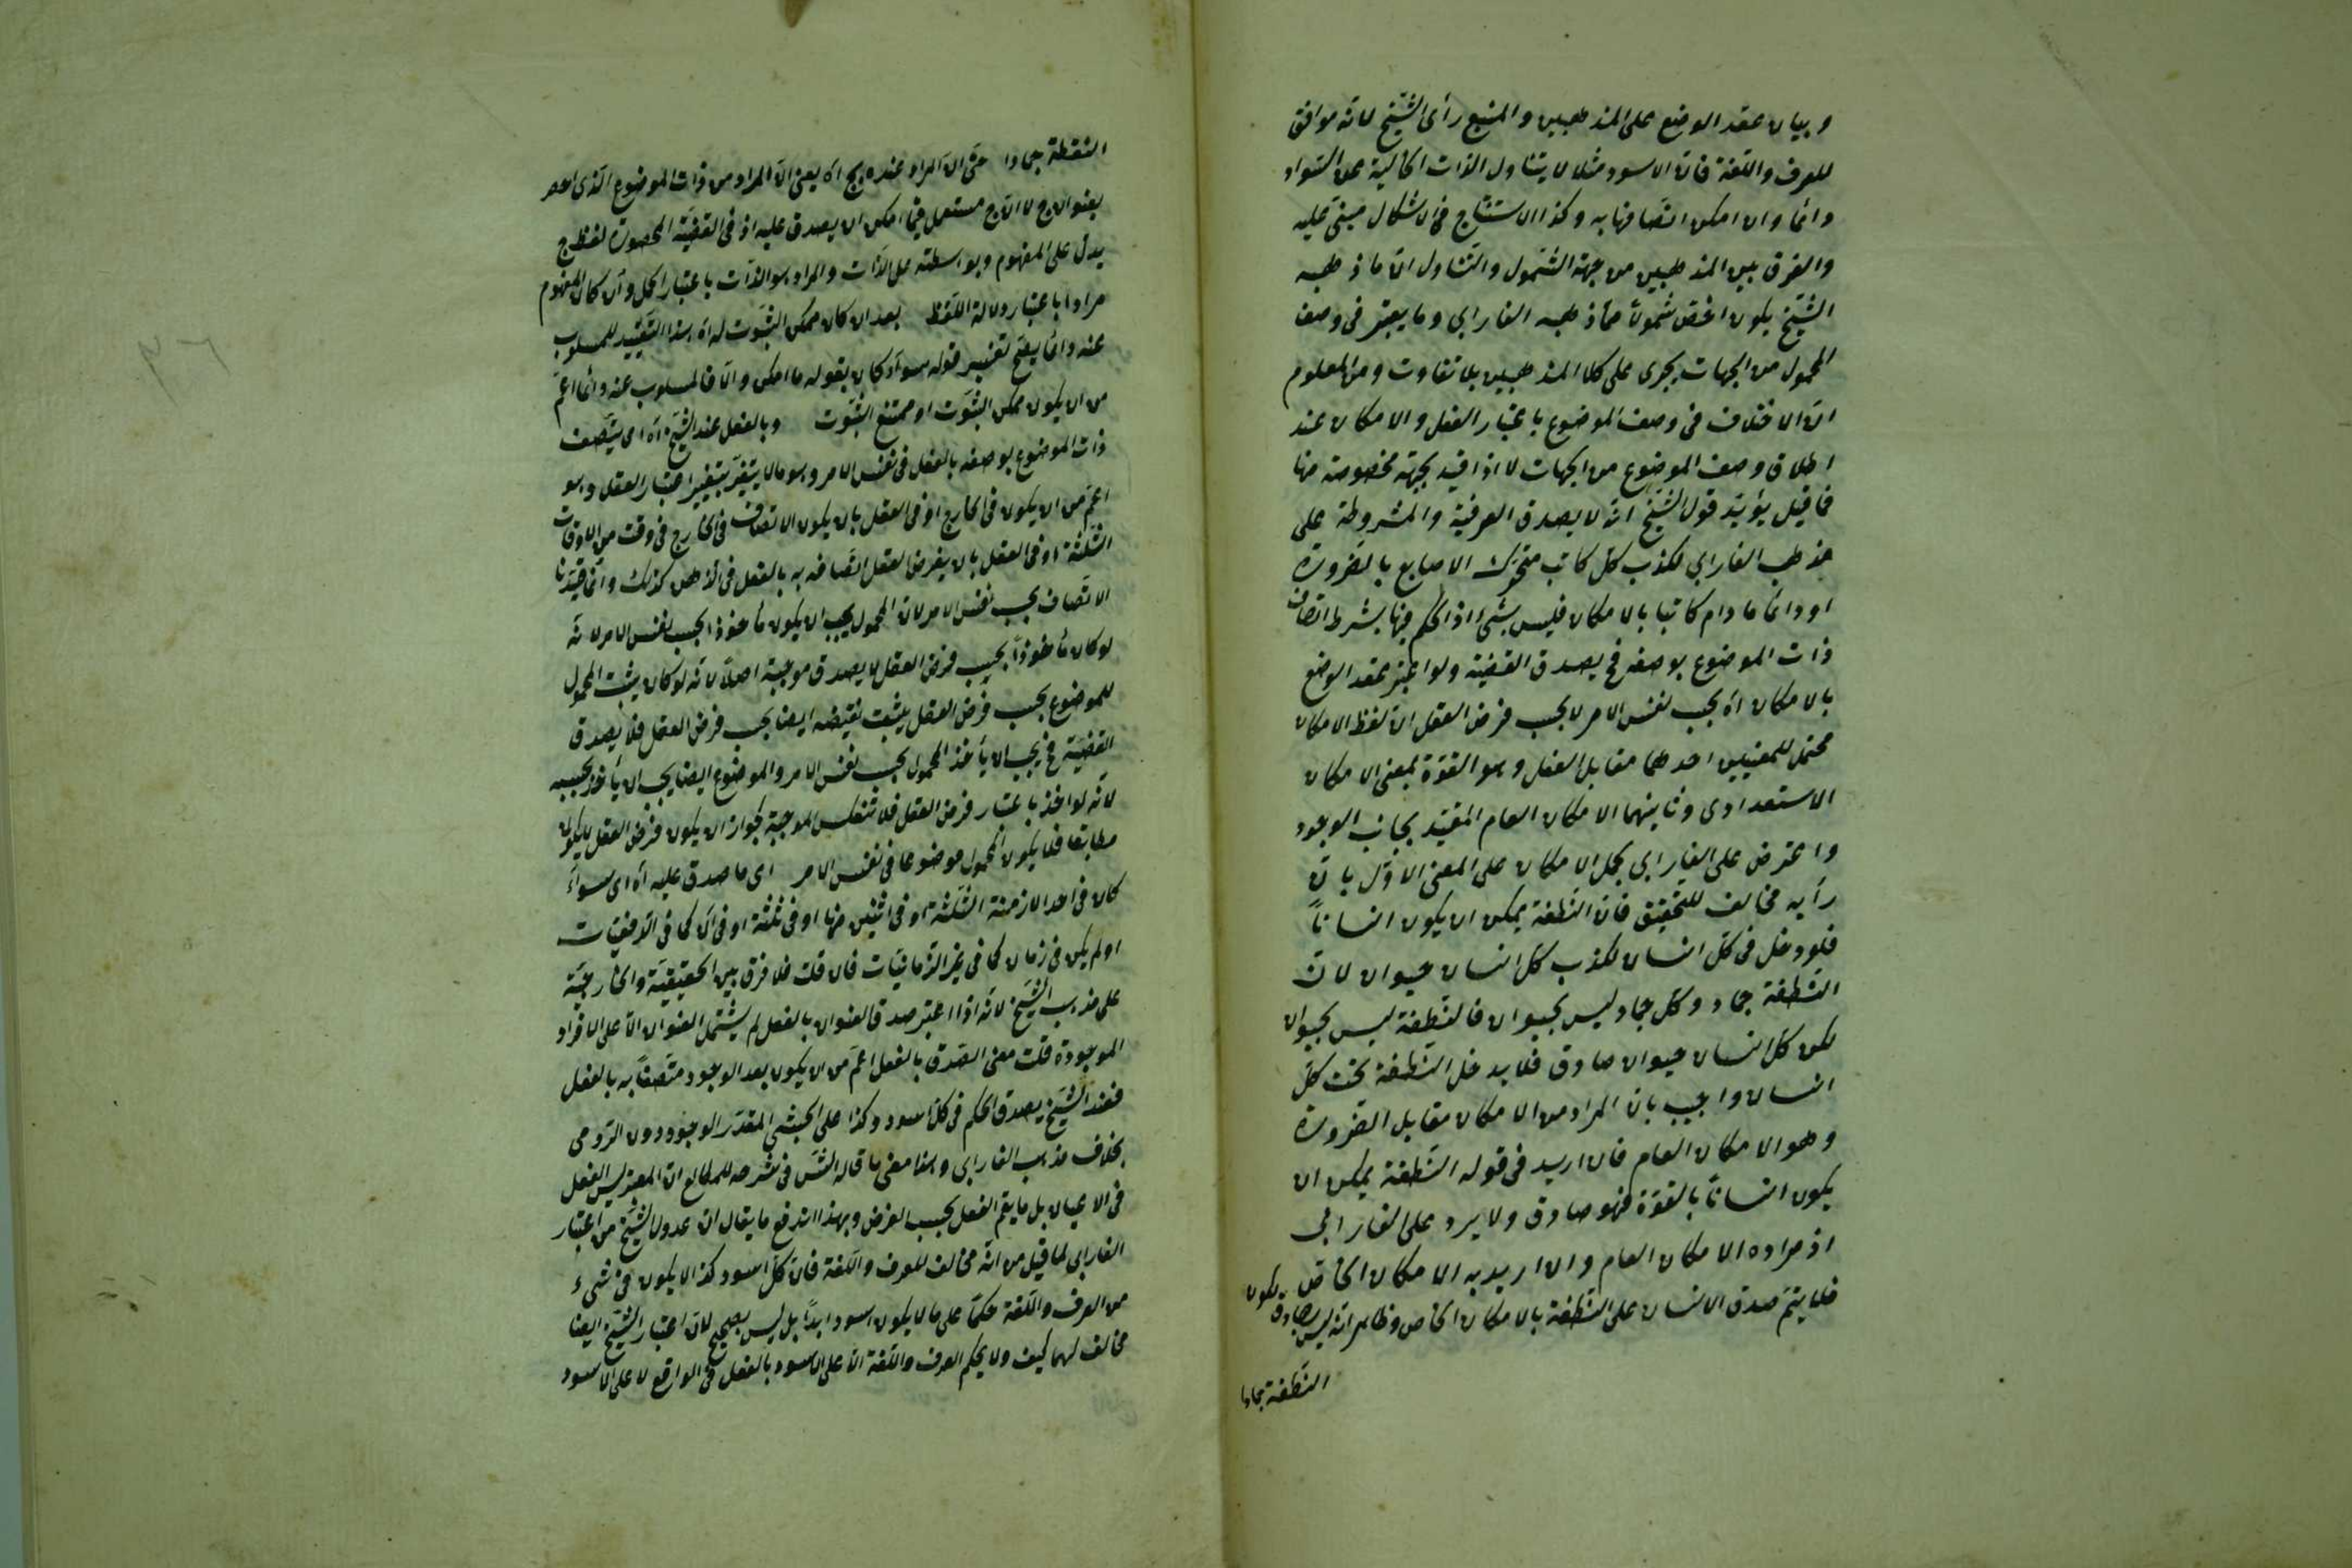 وبيان عقد الوضع على المذهبين والمتبع رأى الشيخ لانه موافق
للعرف واللغة فان الاسود مثلا لا يتناول الذات الخالية عن السواد
دائما وان امكن اتصافها به وكذا الاستنتاج فى الاشكال مبنى عليه
والفرق بين المذهبين من جهة الشمول والتناول ان ما ذهب
الشيخ يكون اخص شمولا مما ذهب الفارابى وما يعتبر فى وصف
المحمول من الجهات يجرى على كلا المذهبين بلا تفاوت ومن المعلوم
ان الاختلاف فى وصف الموضوع باعتبار الفعل والامكان عند
اطلاق وصف الموضوع من الجهات لا اذا قيد بجهة مخصوصة منها
فما قيل يؤيد قول الشيخ انه لا يصدق العرفية والمشروطة على
مذهب الفارابى لكذب كل كاتب متحرك الاصابع بالضرورة
او دائما ما دام كاتبا بالامكان فليس بشئ اذ الحكم فيها بشرط اتصاف
ذات الموضوع بوصفه فح يصدق القضية ولو اعتبر عقد الوضع
بالامكان اه بحسب نفس الامر لا بحسب فرض العقل ان لفظ الامكان
محتمل للمعنيين احدهما مقابل الفعل وهو القوة بمعنى الامكان
الاستعدادى وثانيهما الامكان العام المقيد بجانب الوجود
واعترض على الفارابى بحمل الامكان على المعنى الاول بان
رأيه مخالف للتحقيق فان النطفة يمكن ان يكون انسانا
فلو دخل فى كل انسان لكذب كل انسان حيوان لان
النطفة جماد وكل جماد ليس بحيوان فالنطفة ليس بحيوان
لكن كل انسان حيوان صادق فلا يدخل النطفة تحت كل
انسان واجيب بان المراد من الامكان مقابل الضرورة
وهو الامكان العام فان اريد فى قوله النطفة يمكن ان
يكون انسانا بالقوة فهو صادق ولا يرد على الفارابى
اذ مراده الامكان العام وان اريد به الامكان الخاص
فلا يتم صدق الانسان على النطفة بالامكان الخاص وظاهر انه ليس بصادق لكون
النطفة جمادا
النقطة جمادا حتى ان المراد عنده بج اه يعنى ان المراد من ذات الموضوع الذى
بعنوان ج لا ان ج مستعمل فيما امكن ان يصدق عليه اذ فى القضية المحصورة لفظ ج
يدل على المفهوم وبواسطته على الذات والمراد هو الذات باعتبار الحكم وان كان المفهوم
مرادا باعتبار دلالة اللفظ بعد ان كان ممكن الثبوت له اه هذا التقييد للمسلوب
عنه دائما يفتح تفسير قوله سواء كان بقوله ما امكن والا فالمسلوب عنه دائما اعم
من ان يكون ممكن الثبوت او ممتنع الثبوت وبالفعل عند الشيخ اه اى يتصف
ذات الموضوع بوصفه بالفعل فى نفس الامر وهو ما لا يتغير بتغير اعتبار العقل وهو
اعم من ان يكون فى الخارج او فى العقل بان يكون الاتصاف فى الخارج فى وقت من الاوقات
الثلثة او فى العقل بان يفرض العقل اتصافه به بالفعل فى الذهن كذلك وانما قيدنا
الاتصاف بحسب نفس الامر لان المحمول يجب ان يكون مأخوذا بحسب نفس الامر لانه
لو كان مأخوذا بحسب فرض العقل لا يصدق موجبة اصلا لانه لو كان يثبت المحمول
للموضوع بحسب فرض العقل يثبت نقيضه ايضا بحسب فرض العقل فلا يصدق
القضية فح يجب ان يأخذ المحمول بحسب نفس الامر والموضوع ايضا يجب ان يأخذ بحسبه
لانه لو اخذ باعتبار فرض العقل فلا تنعكس الموجبة لجواز ان يكون فرض العقل لا يكون
مطابقا فلا يكون المحمول موضوعا فى نفس الامر اى ما صدق عليه اه اى سواء
كان فى احد الازمنة الثلثة او فى اثنين منها او فى ثلثة او فى آن كما فى الدفعيات
او لم يكن فى زمان كما فى غير الزمانيات فان قلت فلا فرق بين الحقيقية والخارجية
على مذهب الشيخ لانه اذا اعتبر صدق العنوان بالفعل لم يشتمل العنوان الا على الافراد
الموجودة قلت معنى الصدق بالفعل اعم من ان يكون بعد الوجود متصفا به بالفعل
فعند الشيخ يصدق الحكم فى كل اسود وكذا على الحبشى المقدر الوجود دون الرومى
بخلاف مذهب الفارابى وهذا معنى ما قاله الش فى شرحه للمطالع ان المعتبر ليس الفعل
فى الاعيان بل ما يعم الفعل بحسب الفرض وبهذا اندفع ما يقال ان عدول الشيخ من اعتبار
الفارابى لما قيل من انه مخالف للعرف واللغة فان كل اسود كذا لا يكون فى شىء
من العرف واللغة حكما على ما لا يكون اسود ابدا بل ليس بصحيح لان اعتبار الشيخ ايضا
مخالف لهما كيف ولا يحكم العرف واللغة الا على الاسود بالفعل فى الواقع لا على الاسود
٣٦